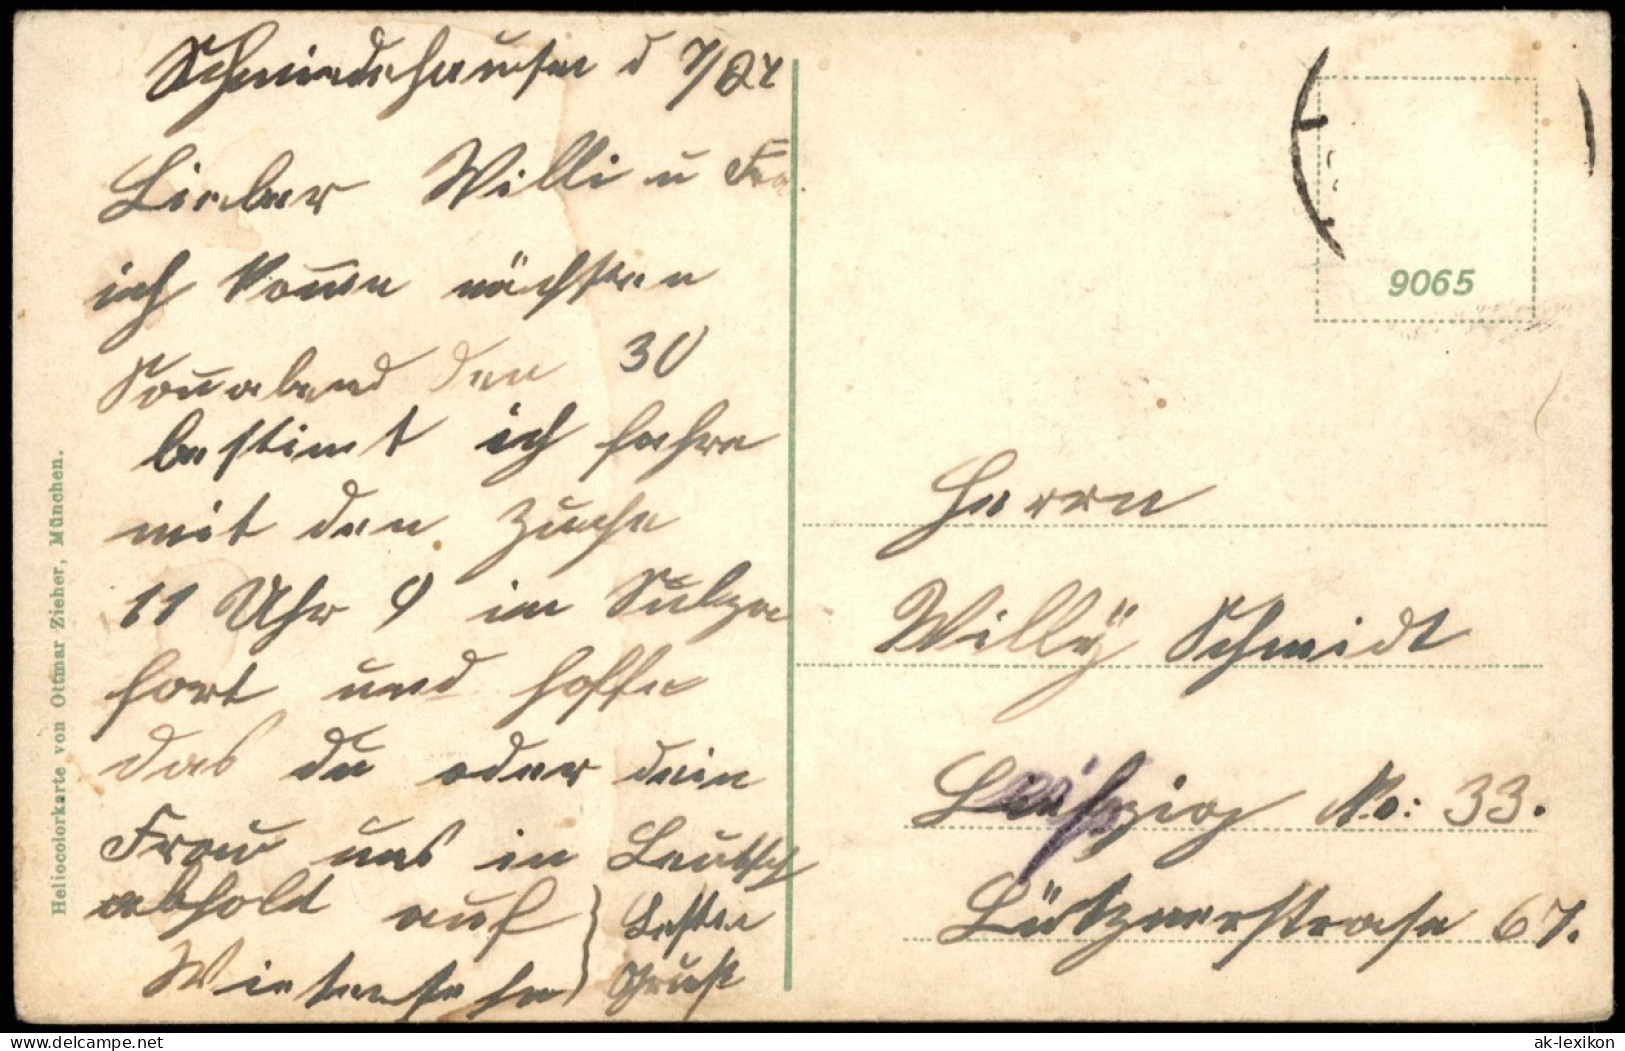 Schmiedehausen d 7/27
Lieber Willi u Frau
ich komme nächsten
Sonnabend den 30
bestimt ich fahre
mit den Zuche
11 Uhr 9 in Sulza
fort und hoffe
das du oder dein
Frau uns in Leutsch
abhold auf
Wiedersehn
Besten
Gruß
Heliocolorkarte von Ottmar Zieher, München.
9065
Herrn
Willy Schmidt
Leipzig No: 33.
Lütznerstrase 67.